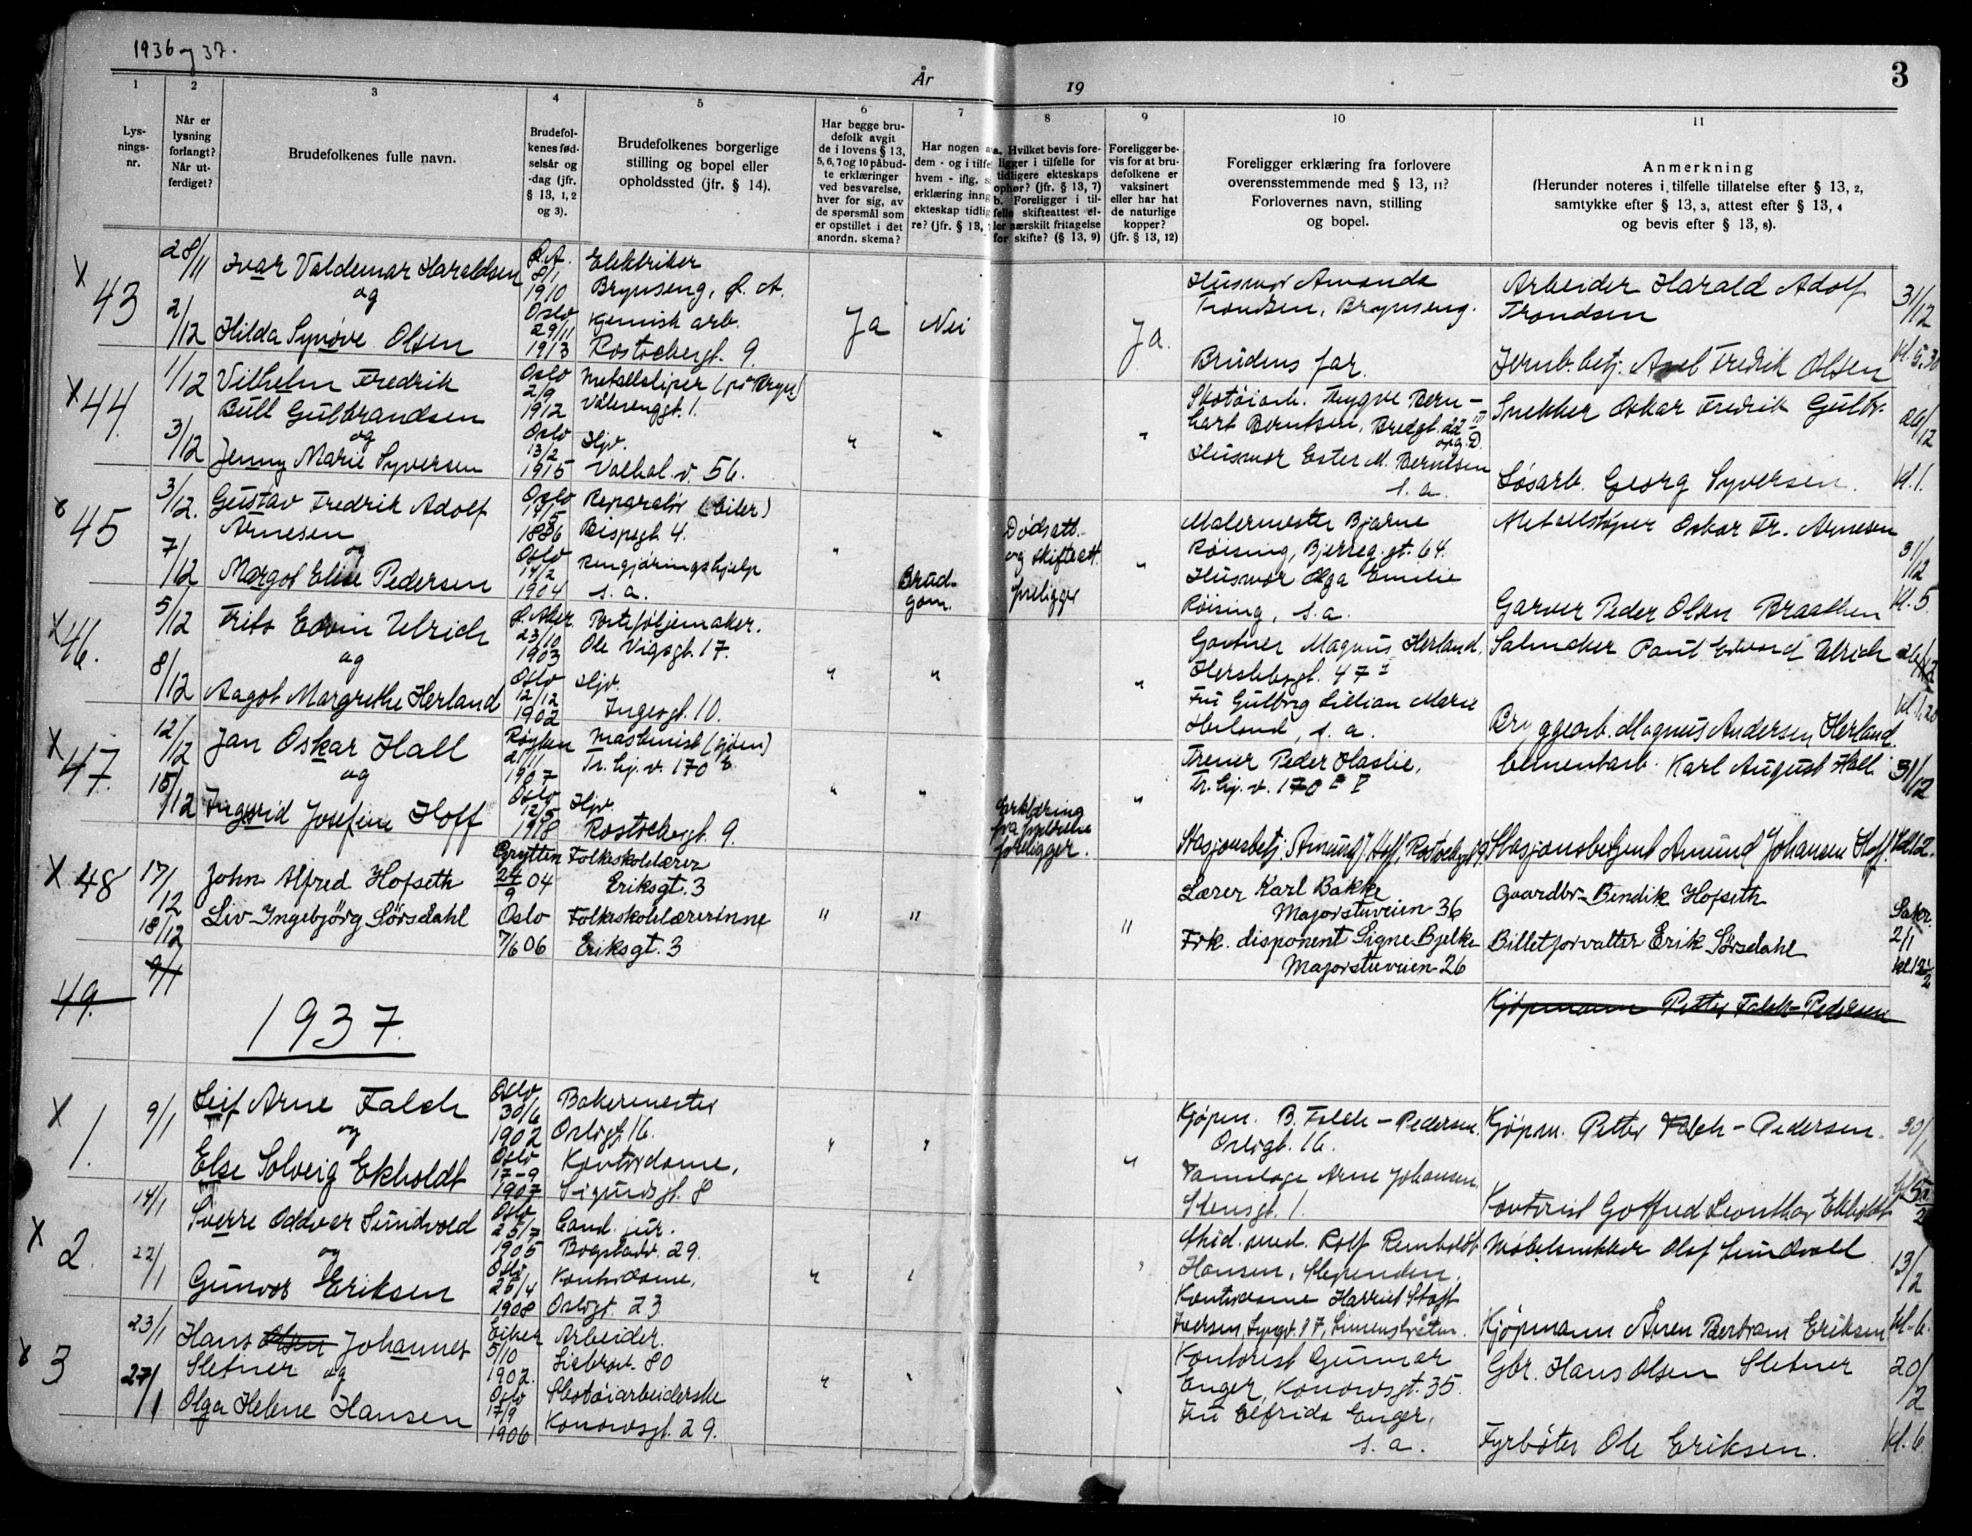 1936 og 37.
År
19
3
1
2
3
4
5
6
7
8
9
10
11
Lys-
nings-
nr.
Når er
lysning
forlangt?
Når ut-
ferdiget?
Brudefolkenes fulle navn.
Brudefol-
kenes fød-
selsår og
-dag (jfr.
§ 13, 1, 2
og 3).
Brudefolkenes borgerlige
stilling og bopel eller
opholdssted (jfr. § 14).
Har begge bru-
defolk avgit
de i lovens § 13,
5, 6, 7 og 10 påbud-
te erklæringer
ved besvarelse,
hver for sig, av
de spørsmål som
er opstillet i det
anordn. skema?
Har nogen a
dem - og i tilfe
hvem - iflg. s
erklæring inng
ekteskap tidlig
re? (jfr. § 13,
a. Hvilket bevis fore-
ligger i tilfelle for
tidligere ekteskaps
ophør? (jfr. § 13, 7)
b. Foreligger i til-
felle skifteattest el-
ler særskilt fritagelse
for skifte? (§ 13, 9)
Foreligger be-
vis for at bru-
defolkene er
vaksinert
eller har hat
de naturlige
kopper?
(jfr. § 13, 12)
Foreligger erklæring fra forlovere
overensstemmende med § 13, 11?
Forlovernes navn, stilling
og bopel.
Anmerkning
(Herunder noteres i tilfelle tillatelse efter § 13, 2,
samtykke efter § 13, 3, attest efter § 13, 4
og bevis efter § 13, 8).
x 43
28/11
2/12
Ivar Valdemar Haraldsen
og
Hilda Synøve Olsen
Ø.A.
8/1
1910
Oslo
29/11
1913
Elektriker
Brynseng, Ø. A.
Kjemisk arb.
Rostockergt. 9.
Ja
Nei
Ja.
Husmor Amanda
Trondsen, Brynseng.
Brudens far.
Arbeider Harald Adolf
Trondsen
Jernb. betj. Axel Fredrik Olsen
31/12
kl. 5.30
x 44.
1/12
3/12
Vilhelm Fredrik
Bull Gulbrandsen
og
Jenny Marie Syversen
Oslo
2/9
1912
Oslo
13/2
1915
Metallsliper (på Bryn)
Vålerenggt. 1.
Hjv.
Valhal. v. 56.
"
"
"
Skotøiarb. Trygve Bern-
hart Berntsen, Bredgt.
Husmor Ester M. Berntsen
s. a.
Snekker Oskar Fredrik Gulbr.
Løsarb. Georg Syversen.
kl. 1.
x 45
3/12.
7/12
Gustav Fredrik Adolf
Arnesen
og
Margot Elise Pedersen
Oslo
1886
Oslo
14/2
1904
Reparatør (biler)
Bispegt. 4.
Rengjøringshjelp
s. a.
"
Brud-
gom.
Dødsatt.
og skifteatt.
foreligger
"
Malermester Bjarne
Røising, Bjerreg. gt. 64.
Husmor Olga Emilie
Røising, s. a.
Metallstøper Oskar Fr. Arnesen
Garver Peder Olsen Braathen
31/12
kl. 5
x 46.
5/12
8/12
Frits Edvin Ulrich
og
Aagot Margrethe Herland
Ø. Aker
23/10
1903
Oslo
12/12
1902
Porteføljemaker.
Ole Vigsgt. 17.
Hjv.
Ingesgt. 10.
"
"
"
Gartner Magnus Herland.
Herslebsgt. 47 I
Fru Gulborg Lillian Marie
Herland, s. a.
Salmaker Paul Edvard Ulrich
Bryggearb. Magnus Andersen Herland.
x 47.
12/12
15/12
Jan Oskar Hall
og
Ingrid Josefine Hoff
Røyken
21/11
1907
Oslo
12/5
1918
Maskinist (sjøen)
Tr. hj. v. 170 b.
Hjv.
Rostockergt. 9.
"
"
Erklæring
fra foreldrene
foreligger.
"
Trener Peder Haslie,
Tr. hj. v. 170
Stasjonsbetj. Amund J. Hoff, Rostockergt 9
Cementarb. Karl August Hall.
Stasjonsbetjent Amund Johansen Hoff.
31/12
x 48
17/12
18/12
John Alfred Hofseth
Liv Ingebjörg Sörsdahl
Grytten
24/9 04
Oslo
7/6 06
Folkeskolelærer
Eriksgt. 3
Folkeskolelærerinne
Eriksgt. 3
"
"
"
Lærer Karl Bakke
Majorstuveien 36
Frk. disponent Signe Bjelke
Majorstuveien 26
Gaardbr. Bendik Hofseth
Billetforvalter Erik Sörsdahl
2/1
49.
9/1
Kjøpmann Petter Falch-Pedersen
1937.
x 1.
9/1
Leif Arne Falch
og
Else Solveig Ekholdt
Oslo
30/6
1902
Oslo
17-9
1907
Bakermester
Oslogt. 16.
Kontordame,
Sigurdsgt. 8
"
"
"
Kjøpm. B. Falch-Pedersen.
Oslogt. 16.
Tannlæge Arne Johansen.
Stensgt. 1.
Kjøpm. Petter Falch-Pedersen.
Kontorist Gotfred Leonthar Ekholdt
30/1
x 2.
14/1
22/1
Sverre Oddvar Sundvold
og
Gunvor Eriksen
Oslo
25/7
1905
Oslo
26/4
1908
Cand. jur.
Bogstadv. 29.
Kontordame,
Oslogt. 23
"
"
Stud. med. Rolf Remholdt
Hansen, Slependen.
Kontordame Harriet Stoft
Iversen,
Møbelsnekker Olaf Sundvoll
Kjøpmann Åren Bertram Eriksen
13/2
kl. 6.
x 3
23/1
27/1
Hans Olsen Johannes
Sletner og
Olga Helene Hansen
Eiker
5/10
1902.
Oslo
17/9
1906
Arbeider.
Liabrov. 80
Skotøiarbeiderske
Konowsgt. 29.
"
Kontorist Gunnar
Enger, Konowsgt. 35.
Fru Elfrida Enger,
s. a.
Gbr. Hans Olsen Sletner
Fyrbøter Ole Eriksen.
20/2
kl. 6